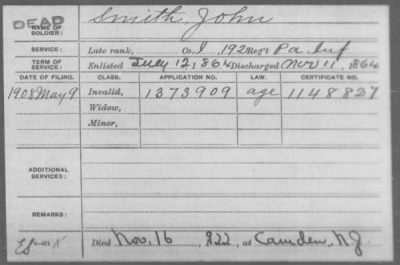 DEAD
NAME OF SOLDIER: Smith, John
SERVICE: Late rank, Co. I, 192 Reg't Pa. Inf
TERM OF SERVICE: Enlisted July 12, 1864 Discharged Nov 11, 1864
DATE OF FILING. CLASS. APPLICATION NO. LAW. CERTIFICATE NO.
1908 May 9 Invalid, 1373909 age 1148827
Widow,
Minor,
ADDITIONAL SERVICES:
REMARKS:
Died Nov. 16, 1922, at Camden, N.J.